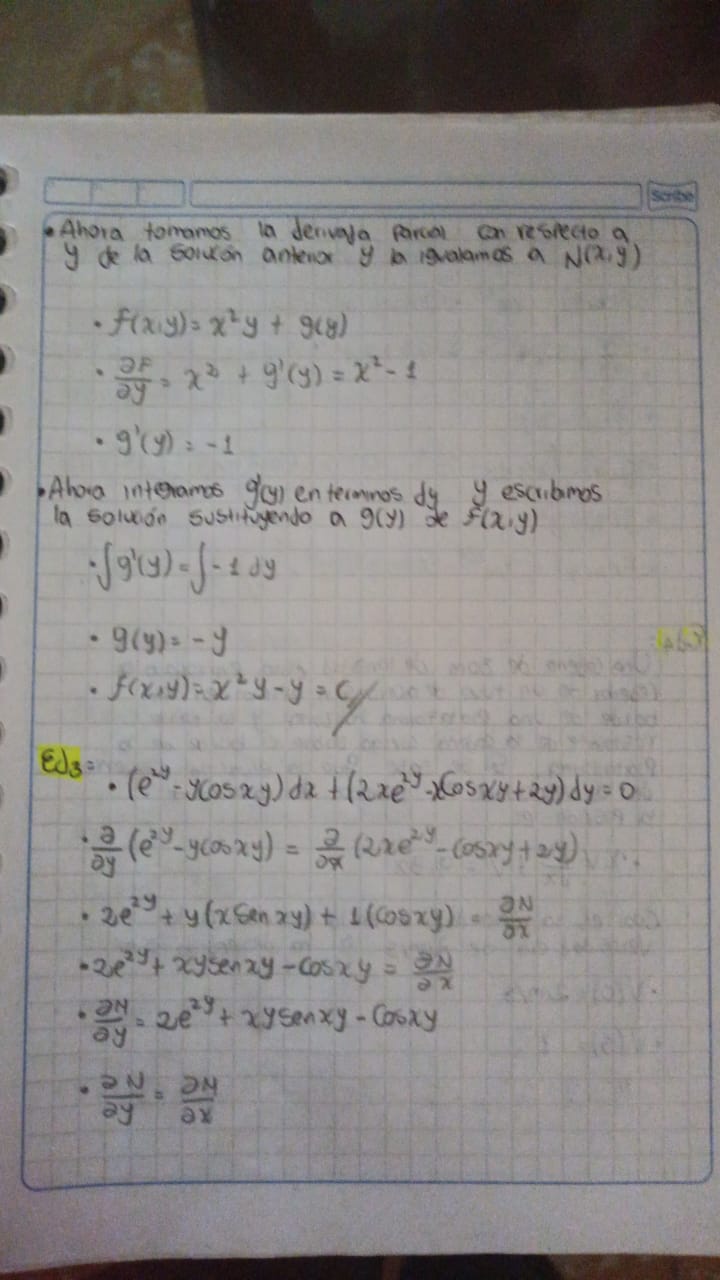 Scribe
• Ahora tomamos la derivada parcial con respecto a
y de la solución anterior y la igualamos a N(x,y)
• f(x,y)= x²y + g(y)
• ∂F/∂y = x² + g'(y) = x² - 1
• g'(y) = -1
• Ahora integramos g'(y) en terminos dy y escribimos
la solución sustituyendo a g(y) de f(x,y)
• ∫g'(y) = ∫-1 dy
• g(y) = -y
• f(x,y) = x²y - y = C
Ed3=
• (e²ʸ - ycosxy) dx + (2xe²ʸ - xcosxy + 2y) dy = 0
• ∂/∂y (e²ʸ - ycosxy) = ∂/∂x (2xe²ʸ - cosxy + 2y)
• 2e²ʸ + y(x Senxy) + 1(cosxy) = ∂N/∂x
• 2e²ʸ + xysenxy - cosxy = ∂N/∂x
• ∂N/∂y = 2e²ʸ + xysenxy - Cosxy
• ∂N/∂y = ∂N/∂x